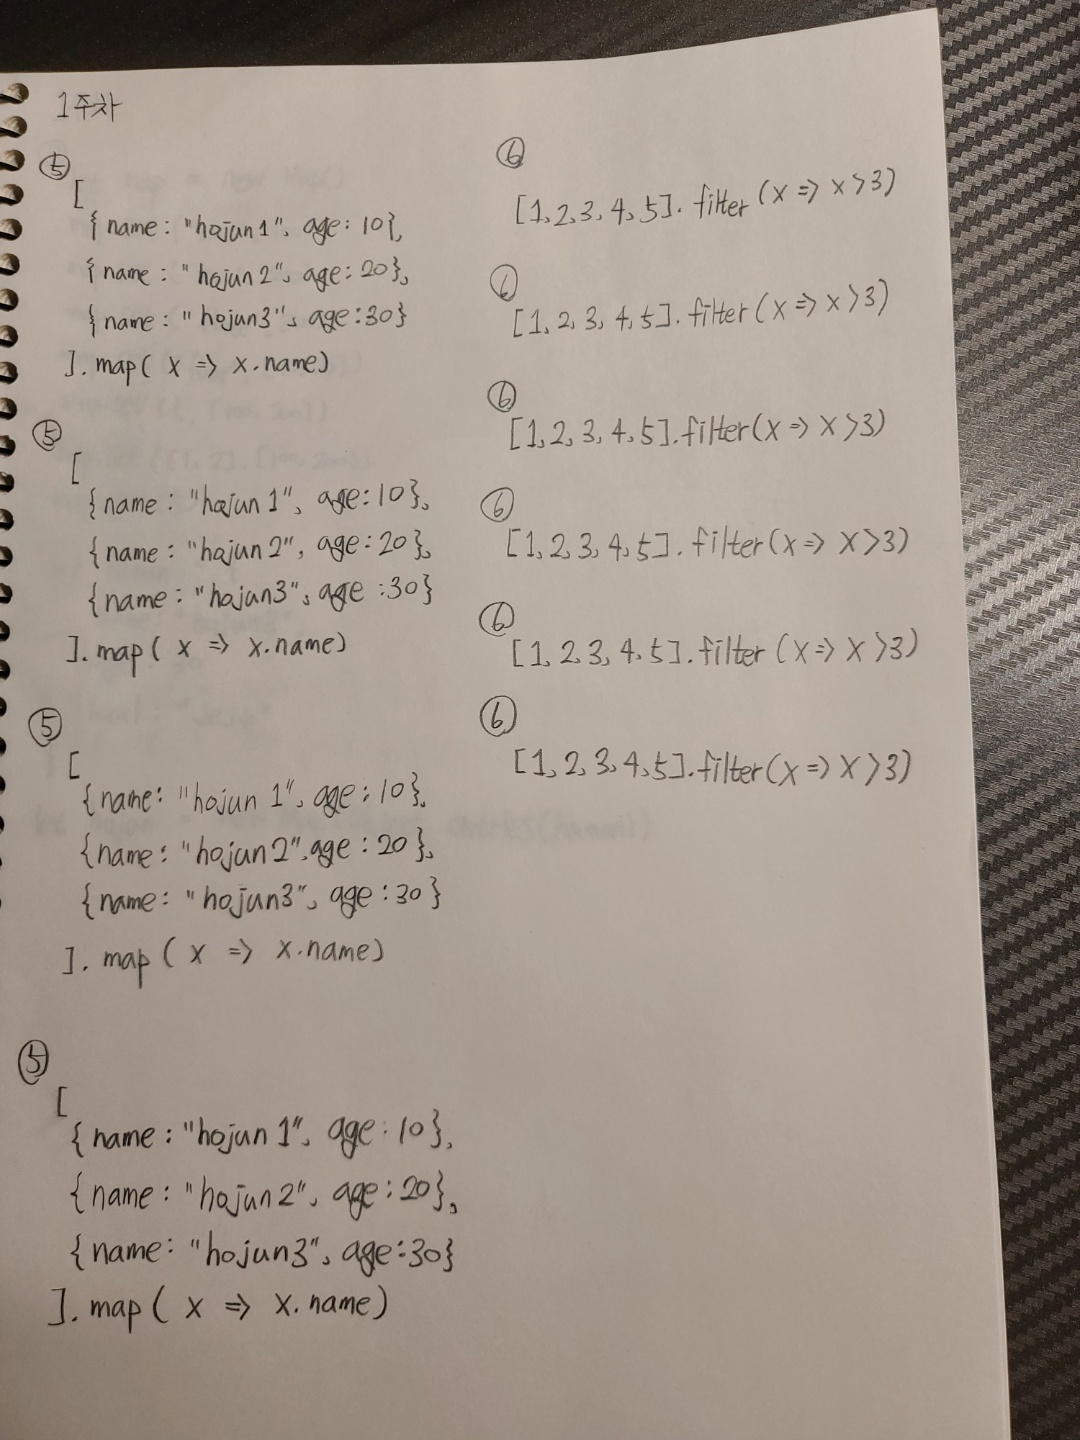 1주차
⑤
[
{ name : "hojun 1", age : 10 },
{ name : "hojun 2", age : 20 },
{ name : "hojun3", age : 30 }
]. map ( x => x. name)
⑤
[
{ name : "hojun 1", age : 10 },
{ name : "hojun 2", age : 20 },
{ name : "hojun3", age : 30 }
]. map ( x => x. name)
⑤
[
{ name : "hojun 1", age : 10 },
{ name : "hojun 2", age : 20 },
{ name : "hojun3", age : 30 }
]. map ( x => x. name)
⑤
[
{ name : "hojun 1", age : 10 },
{ name : "hojun 2", age : 20 },
{ name : "hojun3", age : 30 }
]. map ( x => x. name)
⑥
[1, 2, 3, 4, 5]. filter (x => x >3)
⑥
[1, 2, 3, 4, 5]. filter (x => x >3)
⑥
[1, 2, 3, 4, 5]. filter (x => x >3)
⑥
[1, 2, 3, 4, 5]. filter (x => x >3)
⑥
[1, 2, 3, 4, 5]. filter (x => x >3)
⑥
[1, 2, 3, 4, 5]. filter (x => x >3)